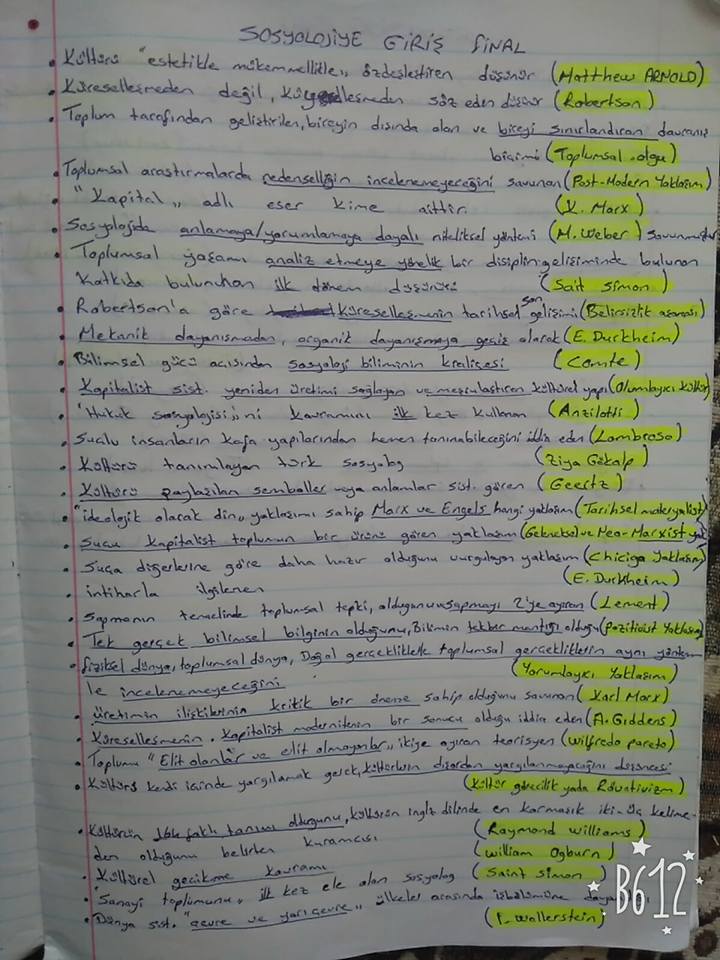 SOSYOLOJİYE GİRİŞ FİNAL
• Kültürü "estetikle mükemmellikle" özdeşleştiren düşünür (Matthew ARNOLD)
• Küreselleşmeden değil, küyerelleşmeden söz eden düşünür (Robertson)
• Toplum tarafından geliştirilen, bireyin dışında olan ve bireyi sınırlandıran davranış
biçimi (Toplumsal olgu)
• Toplumsal araştırmalarda nedenselliğin incelenemeyeceğini savunan (Post-Modern Yaklaşım)
• "Kapital" adlı eser kime aittir. (K. Marx)
• Sosyolojide anlamaya/yorumlamaya dayalı niteliksel yöntemi (M. Weber) savunmuştur
• Toplumsal yaşamı analiz etmeye yönelik bir disiplin gelişiminde bulunan
katkıda bulunan ilk dönem düşünürü (Sait Simon)
• Robertson'a göre Küreselleşmenin tarihsel son gelişimi (Belirsizlik aşaması)
• Mekanik dayanışmadan, organik dayanışmaya geçiş olarak (E. Durkheim)
• Bilimsel gücü açısından sosyoloji biliminin kraliçesi (Comte)
• Kapitalist sist. yeniden üretimi sağlayan ve meşrulaştıran kültürel yapı (Olumlayıcı kültür)
• 'Hukuk sosyolojisi"ni kavramını ilk kez kullanan (Anzilotti)
• Suçlu insanların kafa yapılarından hemen tanınabileceğini iddia eden (Lombroso)
• Kültürü tanımlayan türk sosyolog (Ziya Gökalp)
• Kültürü paylaşılan semboller veya anlamlar sist. gören (Geertz)
• "ideolojik olarak din" yaklaşımı sahip Marx ve Engels hangi yaklaşım (Tarihsel materyalist)
• Suçu kapitalist toplumun bir ürünü gören yaklaşım (Geleneksel ve Neo-Marxist yak
• Suça diğerlerine göre daha hazır olduğunu vurgulayan yaklaşım (Chicago Yaklaşım)
• intiharla ilgilenen (E. Durkheim)
• Sapmanın temelinde toplumsal tepki, olduğunu ve sapmayı 2'ye ayıran (Lement)
• Tek gerçek bilimsel bilginin olduğunu, Bilimin tek bir mantığı olduğu (Pozitivist Yaklaşım)
• fiziksel dünya, toplumsal dünya, Doğal gerçekliklerle toplumsal gerçekliklerin aynı yöntem
le incelenemeyeceğini (Yorumlayıcı Yaklaşım)
• üretimin ilişkilerinin kritik bir öneme sahip olduğunu savunan (Karl Marx)
• Küreselleşmenin, kapitalist modernitenin bir sonucu olduğu iddia eden (A. Giddens)
• Toplumu "Elit olanlar ve elit olmayanlar" ikiye ayıran teorisyen (Wilfredo pareto)
• Kültürü kendi içinde yargılamak gerek, kültürlerin dışardan yargılanmayacağını düşüncesi
(Kültür görecilik yada Rölativizm)
• Kültürün 164 farklı tanımı olduğunu, kültürün ingiliz dilinde en karmaşık iki-üç kelime-
den olduğunu belirten kuramcısı (Raymond Williams)
• Kültürel gecikme kavramı (William Ogburn)
• 'Sanayi toplumunu" ilk kez ele alan sosyolog (Saint Simon)
• Dünya sist. "çevre ve yarı çevre" ülkeler arasında işbölümüne
(I. Wallerstein)
B612